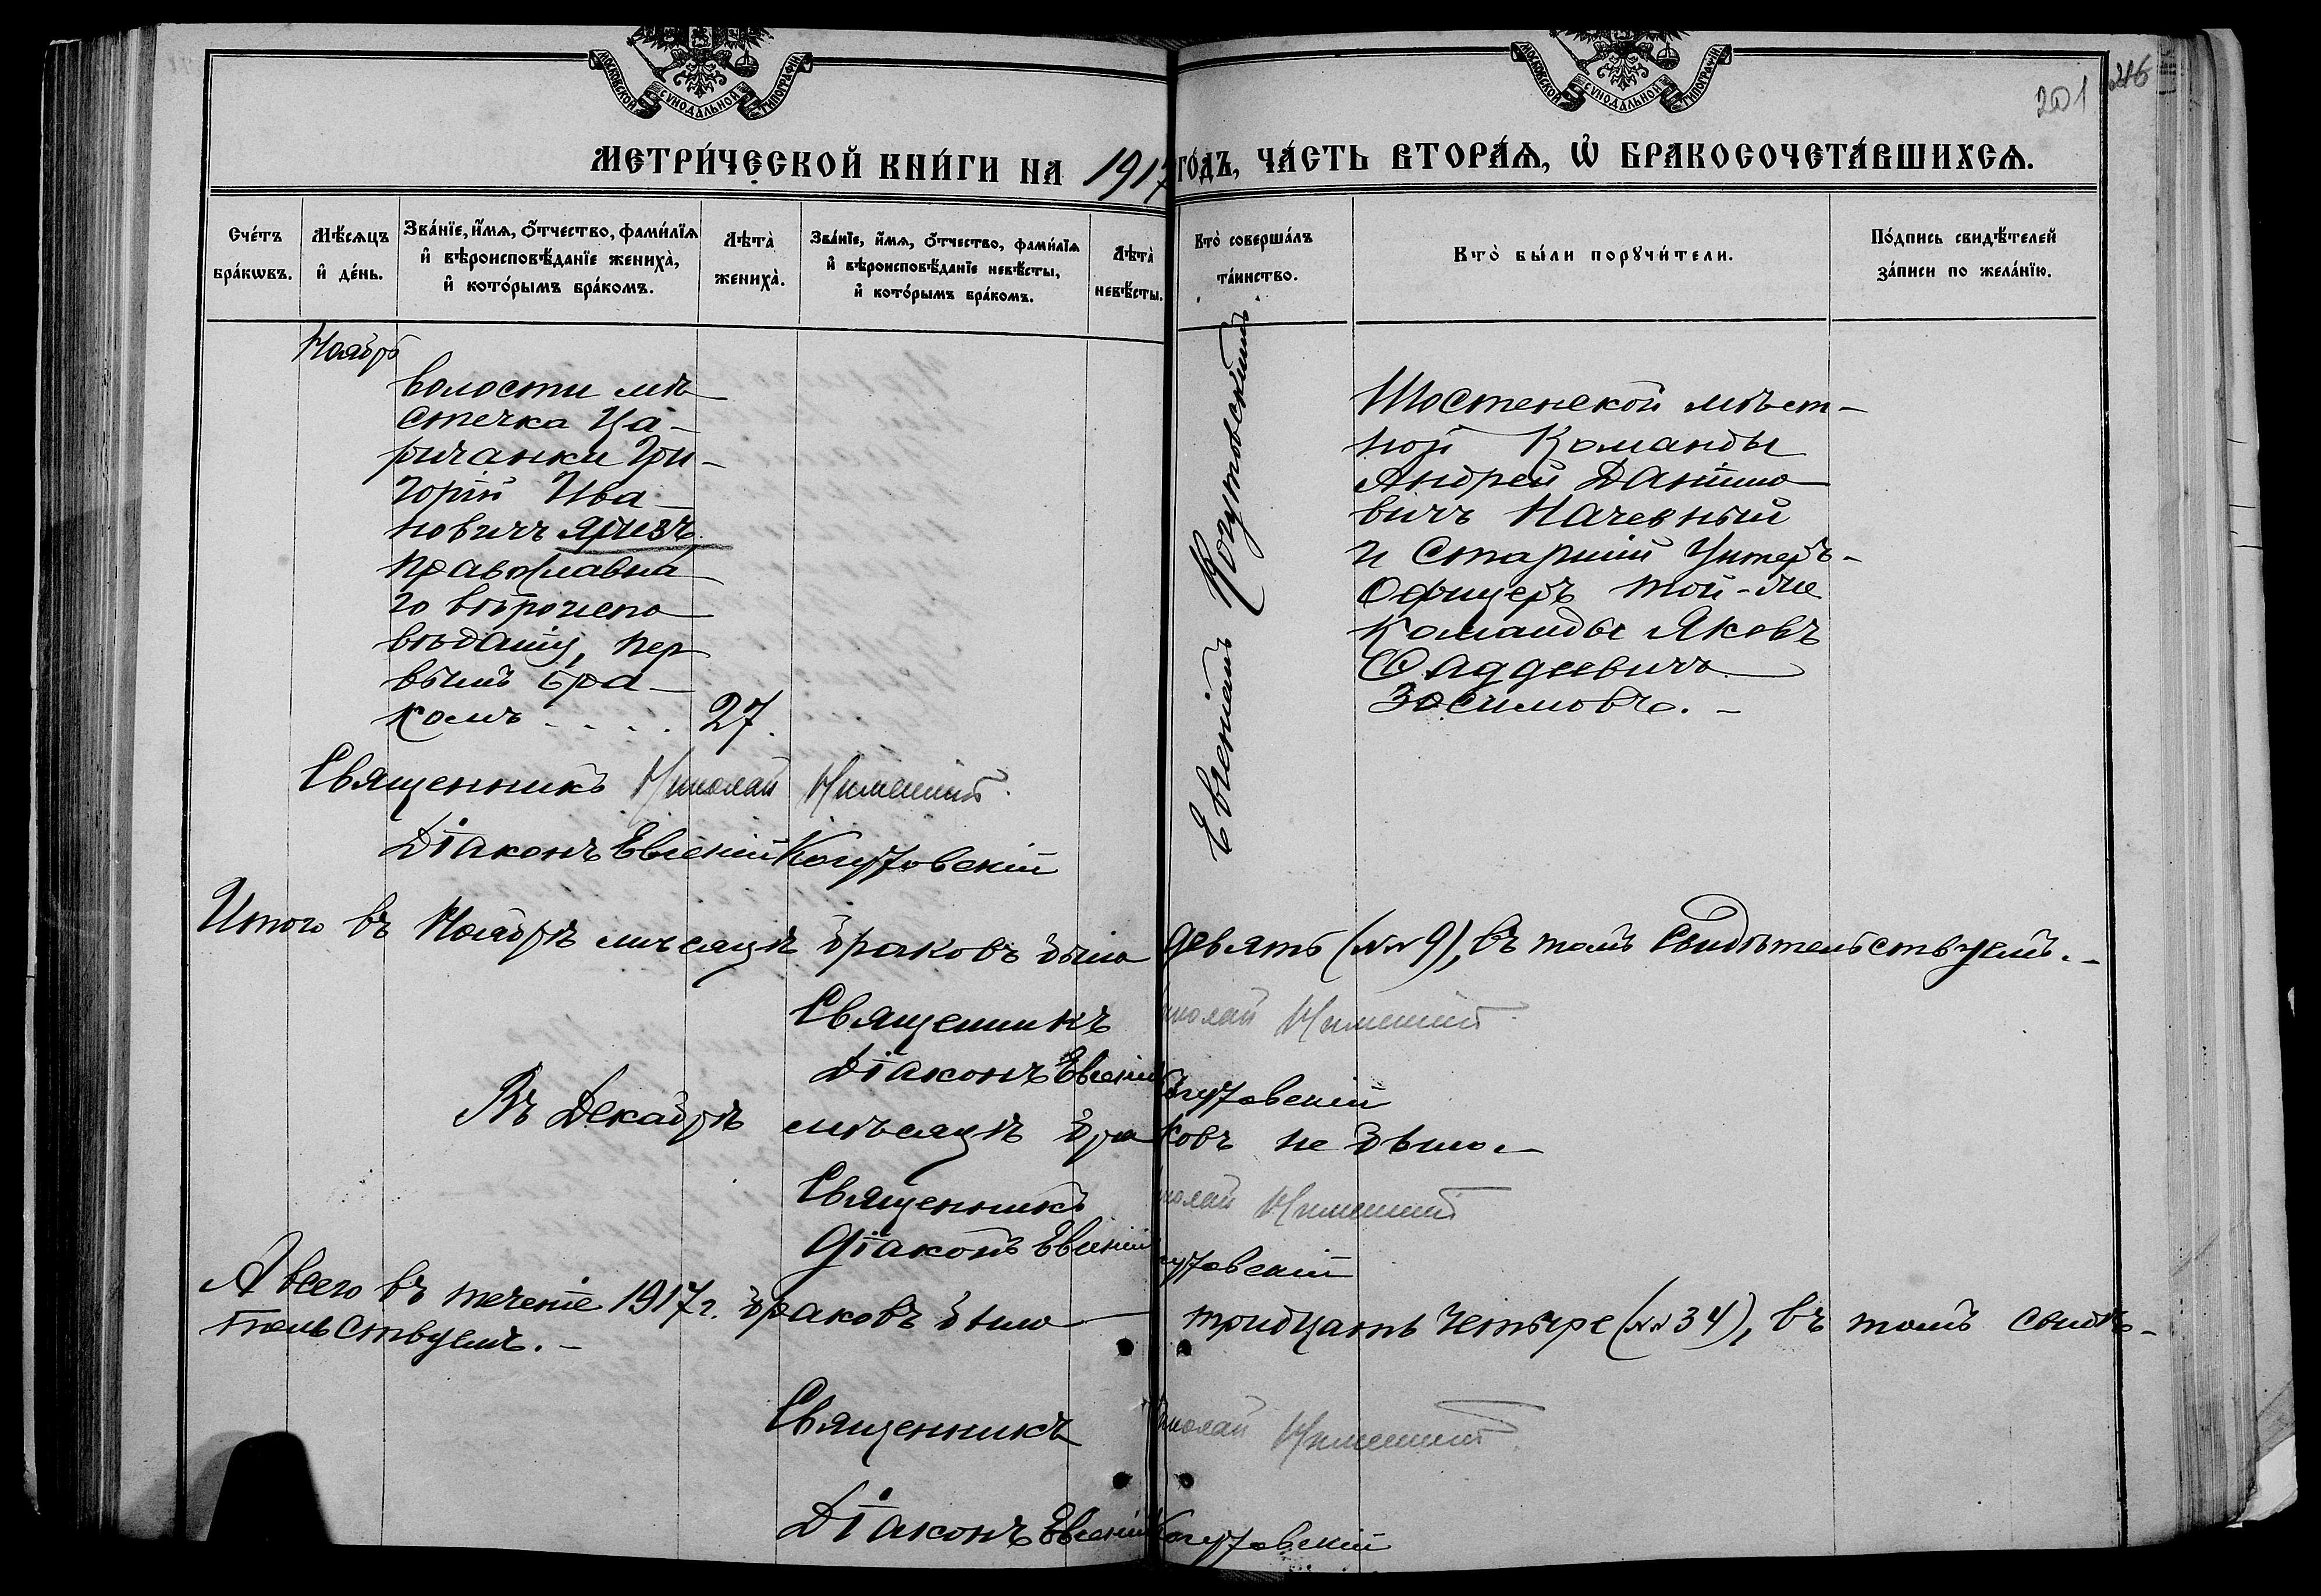 МОСКОВСКОЙ СѴНОДАЛЬНОЙ ТИПОГРАФІИ
МОСКОВСКОЙ СѴНОДАЛЬНОЙ ТИПОГРАФІИ
201 216
МЕТРИ́ЧЕСКОЙ КНИ́ГИ НА 1917 ГО́ДЪ, ЧА́СТЬ ВТОРА́Ѧ, Ѡ҆ БРАКОСОЧЕТА́ВШИХСѦ.
Сче́тъ бра́кѡвъ.
Мѣ́сѧцъ и҆ де́нь.
Зва́нїе, и҆́мѧ, ѻ҆́тчество, фами́лїѧ и҆ вѣроисповѣ́данїе жениха̀, и҆ кото́рымъ бра́комъ.
Лѣта̀ жениха̀.
Зва́нїе, и҆́мѧ, ѻ҆́тчество, фами́лїѧ и҆ вѣроисповѣ́данїе невѣ́сты, и҆ кото́рымъ бра́комъ.
Лѣта̀ невѣ́сты.
Кто̀ соверша́лъ та́инство.
Кто̀ бы́ли порꙋчи́тели.
По́дпись свидѣ́телей за́писи по жела́нїю.
Ноябрь
волости мѣ-
стечка Ца-
ричанки Гри-
горій Ива-
новичъ Яризъ
православна-
го вѣроиспо-
вѣданія, пер-
вымъ бра-
комъ . . . . 27.
Евгеніемъ Когутовскимъ
Шостенской мѣст-
ной Команды
Андрей Данило-
вичъ Начевный
и Старшій Унтеръ-
Офицеръ той-же
команды Яковъ
Фаддеевичъ
Зосимовъ. -
Священникъ Николай
Діаконъ Евгеній Когутовскій
Итого въ Ноябрѣ мѣсяцѣ браковъ было девять (№№ 9), въ томъ свидѣтельствуемъ. -
Священникъ Николай
Діаконъ Евгеній Когутовскій
Въ Декабрѣ мѣсяцѣ браковъ не было. -
Священникъ Николай
Діаконъ Евгеній Когутовскій
А всего въ теченіе 1917 г. браковъ было - тридцать четыре (№№ 34), въ томъ свидѣ-
тельствуемъ. -
Священникъ Николай
Діаконъ Евгеній Когутовскій